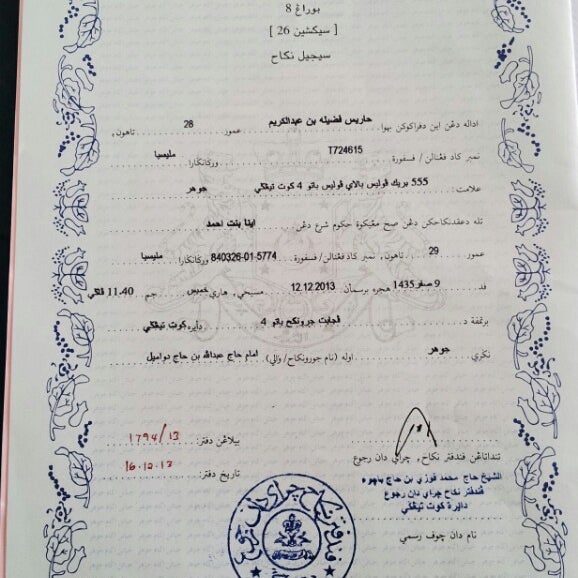 بوراڠ 8
[ سيكشين 26 ]
سيجيل نكاح
اداله دڠن اين دفراكوكن بهوا حاريس فضيله بن عبدالكريم عمور 28 تاهون,
نمبر كاد ڤڠنالن / ڤسڤورة T724615 ورݢانݢارا مليسيا
علامت: 555 بريك ڤوليس بالاي ڤوليس باتو 4 كوت تيڠݢي جوهر
تله دعقدنكاحكن دڠن صح مڠيكوة حكوم شرع دڠن اينا بنت احمد
عمور 29 تاهون, نمبر كاد ڤڠنالن / ڤسڤورة 840326-01-5774 ورݢانݢارا مليسيا
ڤد 9 صفر 1435 هجرة برسمأن 12.12.2013 مسيحي, هاري خميس جم 11.40 ڤاݢي
برتمڤة د ڤجابت جورونكاح باتو 4 دائيره كوت تيڠݢي
نݢري جوهر اوله (نام جورونكاح/ والي) امام حاج عبدالله بن حاج دواميل
بيلاڠن دفتر: 1794/13
تنداتاڠن ڤندفتر نكاح, چراي دان رجوع
تاريخ دفتر: 16.12.13
الشيخ حاج محمد فوزي بن حاج
ڤندفتر نكاح چراي دان رجوع
دائيره كوت تيڠݢي
نام دان چوڤ رسمي
ڤندفتر نكاح چراي دان رجوع